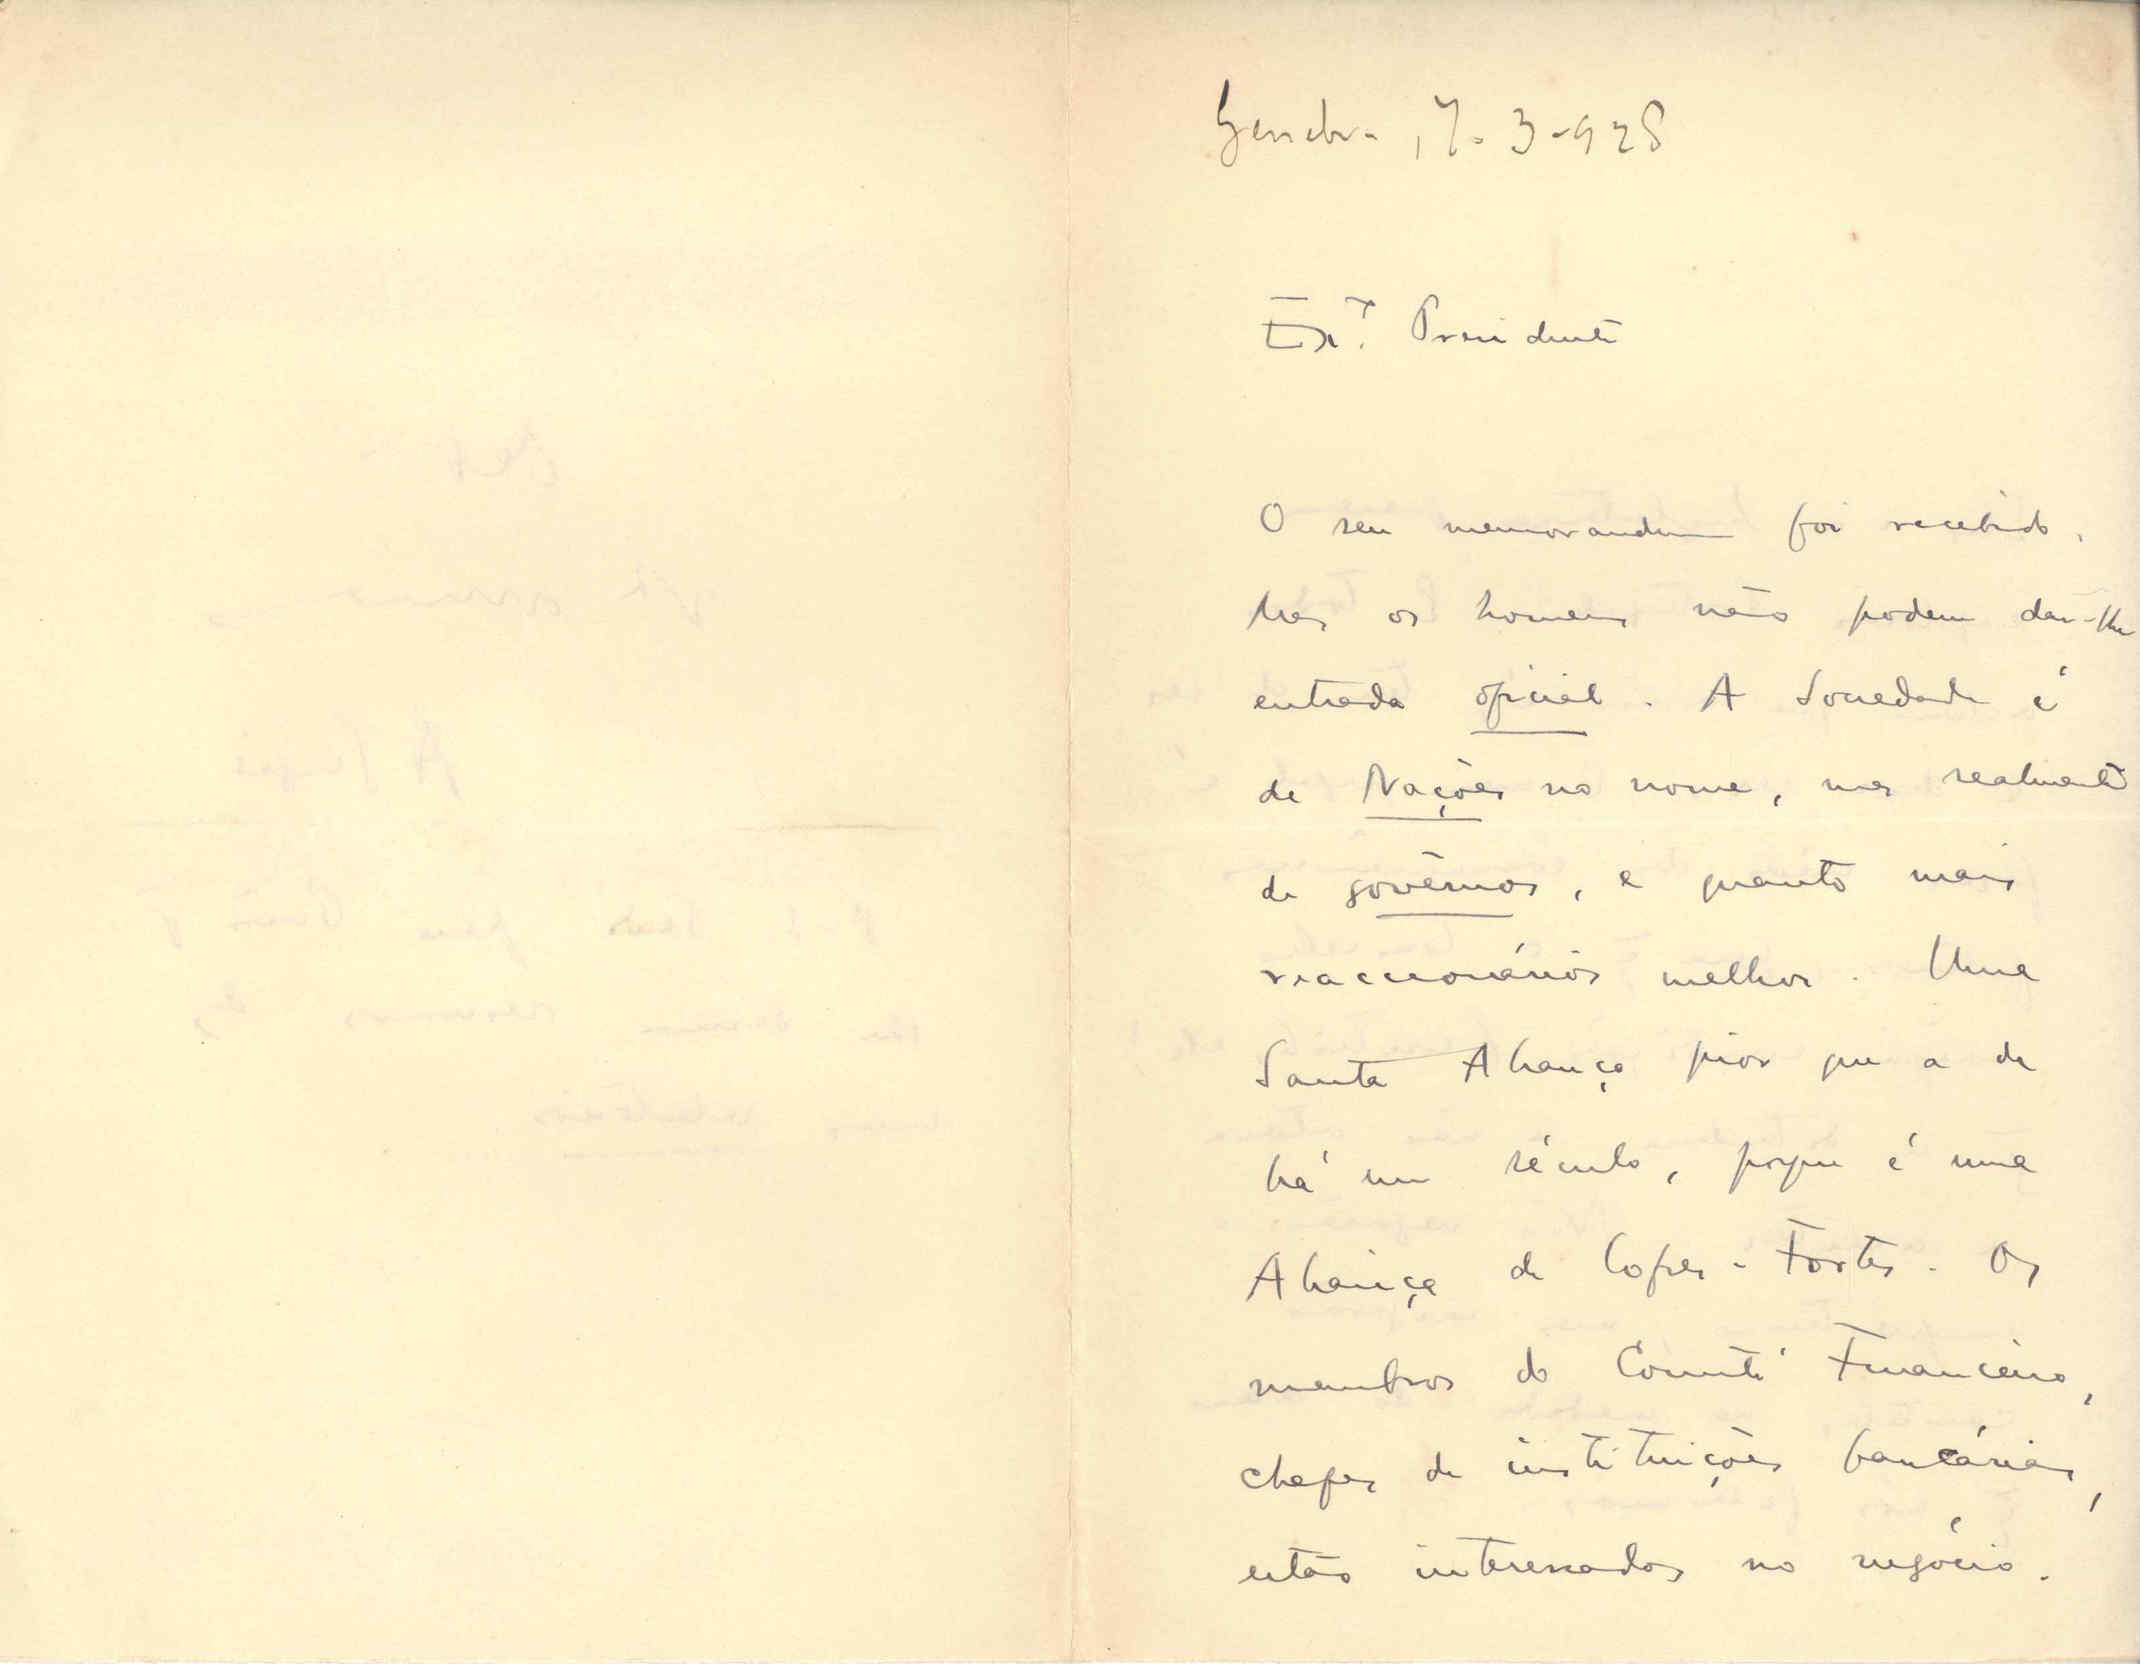 Genebra 17-3-928
Ex.º Presidente
O seu memorandum foi recebido.
Mas os homens não podem dar-lhe
entrada oficial. A Sociedade é
de Nações no nome, mas realmente
de govêrnos, e quanto mais
reaccionários melhor. Uma
Santa Aliança pior que a de
há um século, porque é uma
Aliança de Cofres-Fortes. Os
membros do Comité Financeiro,
chefes de instituições bancárias,
estão interessados no negócio.